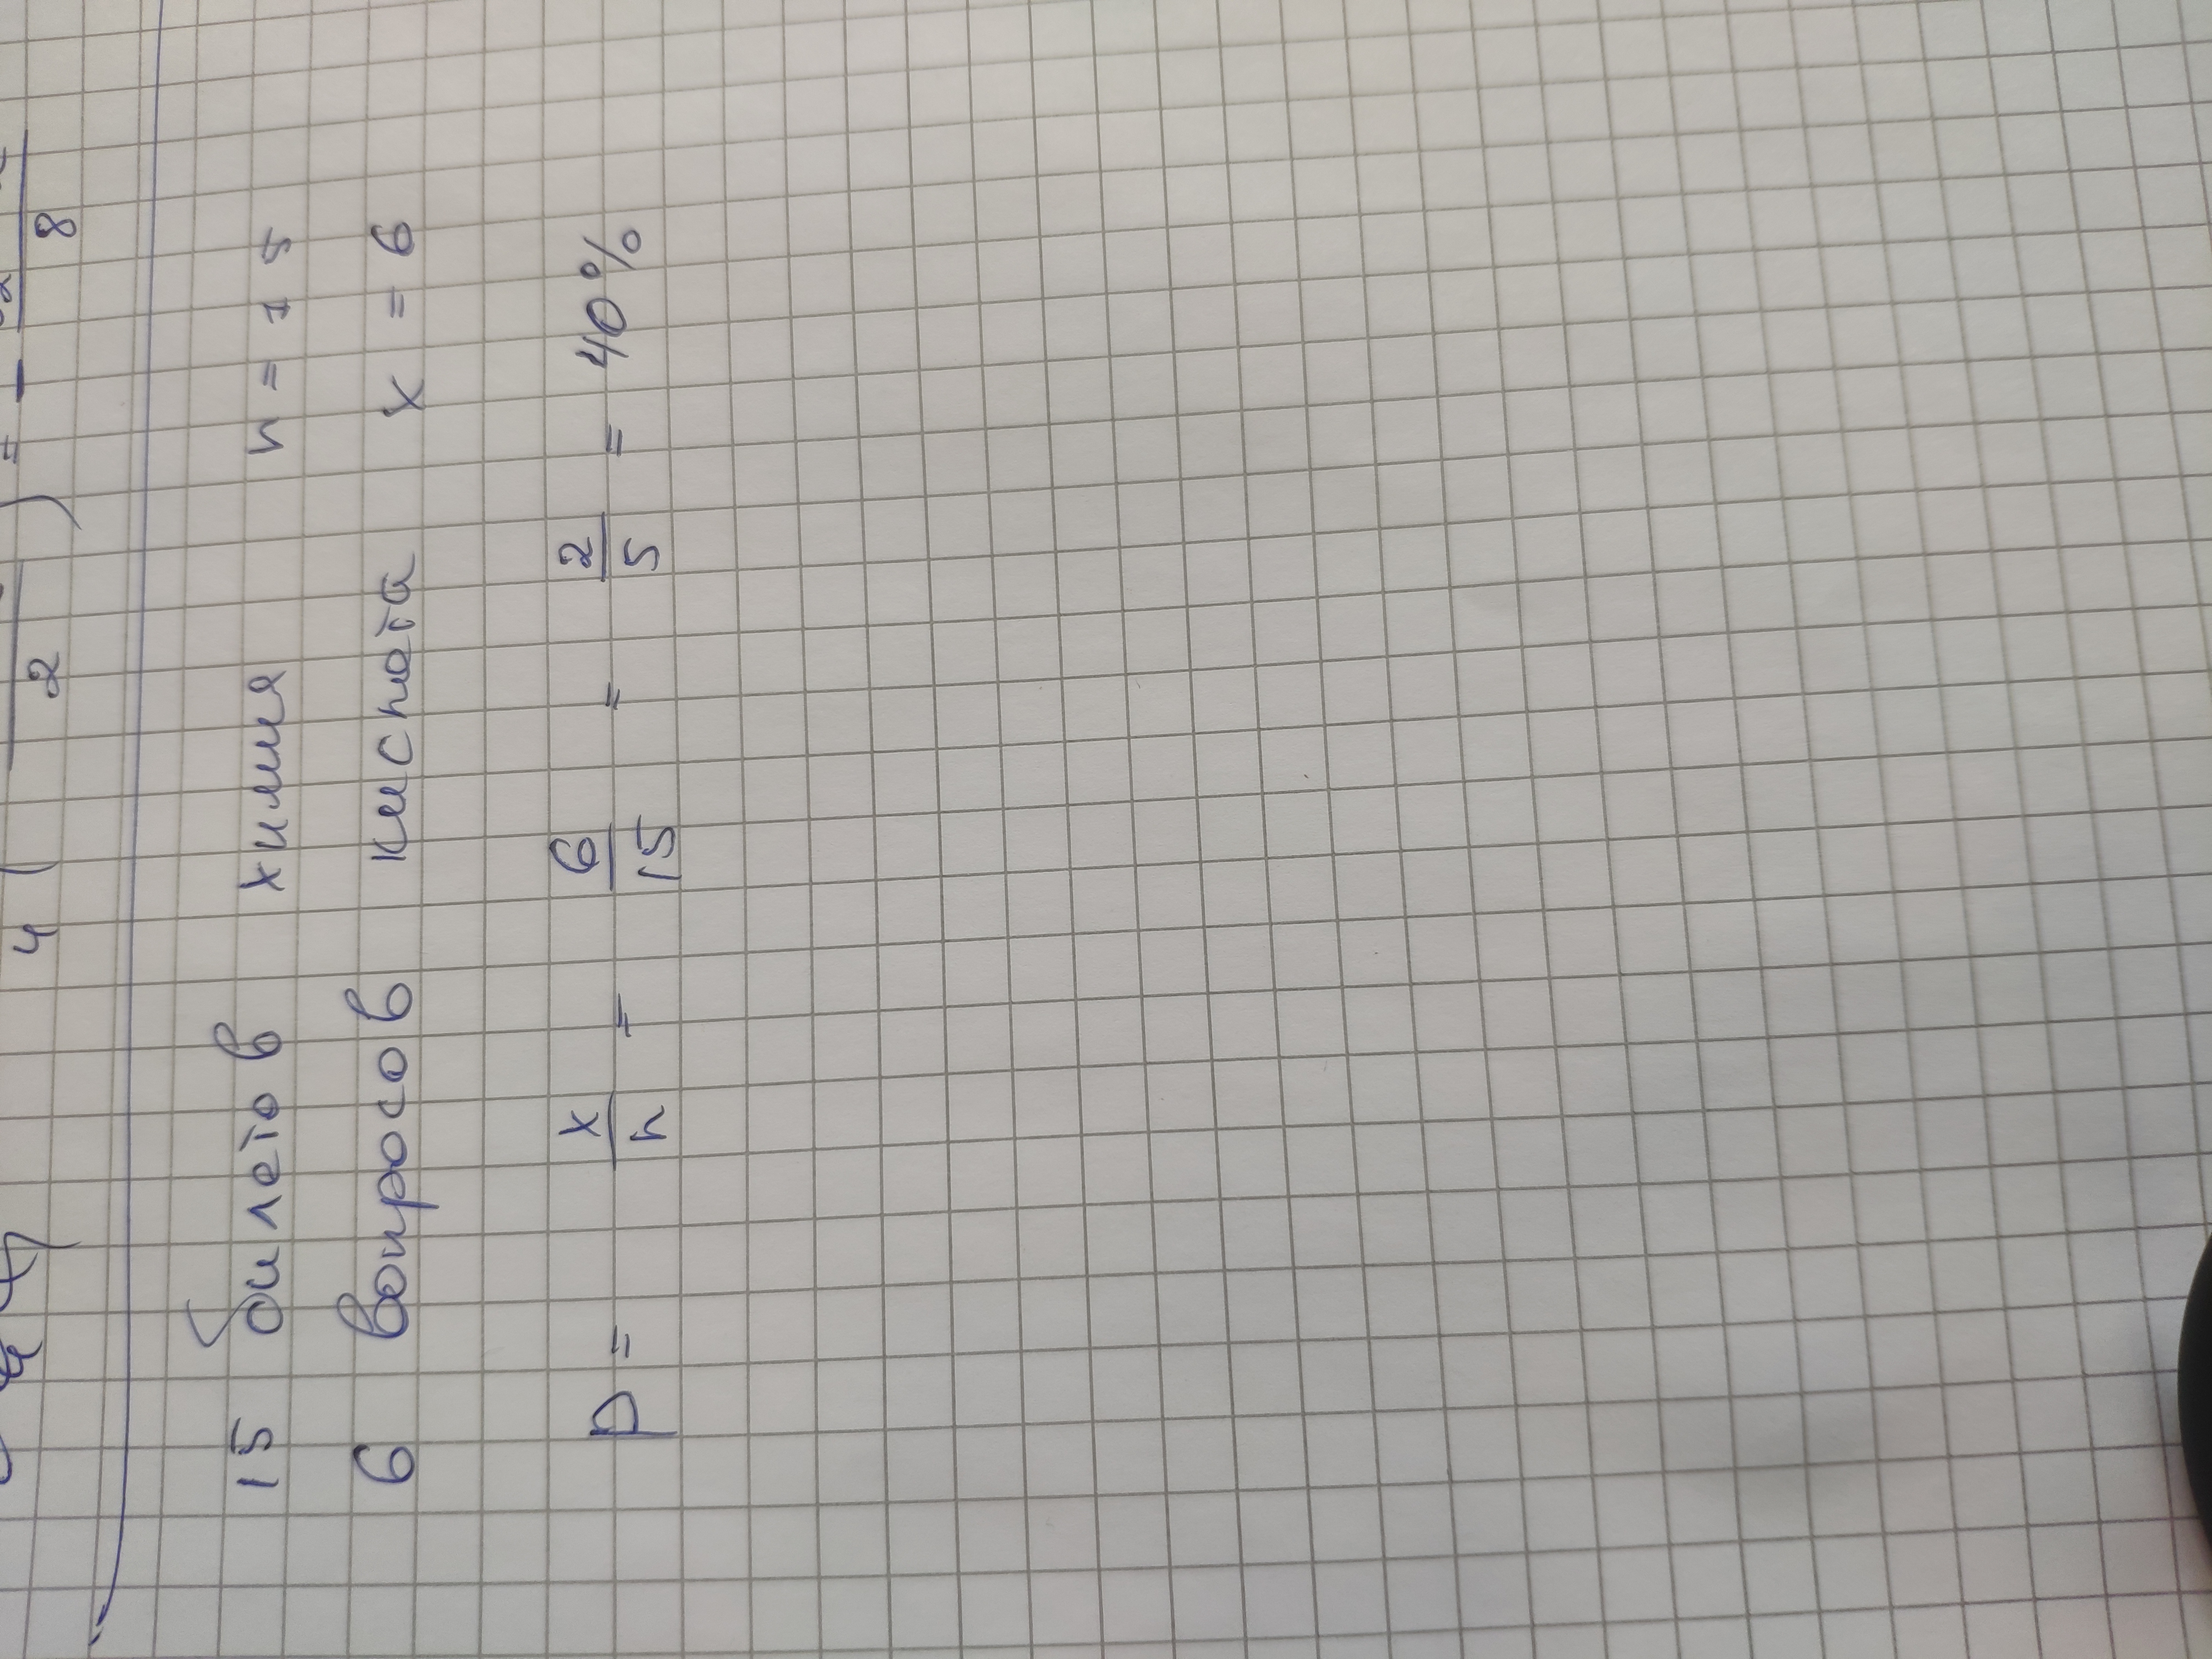 15 билетов химия n = 15
6 вопросов кислота x = 6
P = x/n = 6/15 = 2/5 = 40%